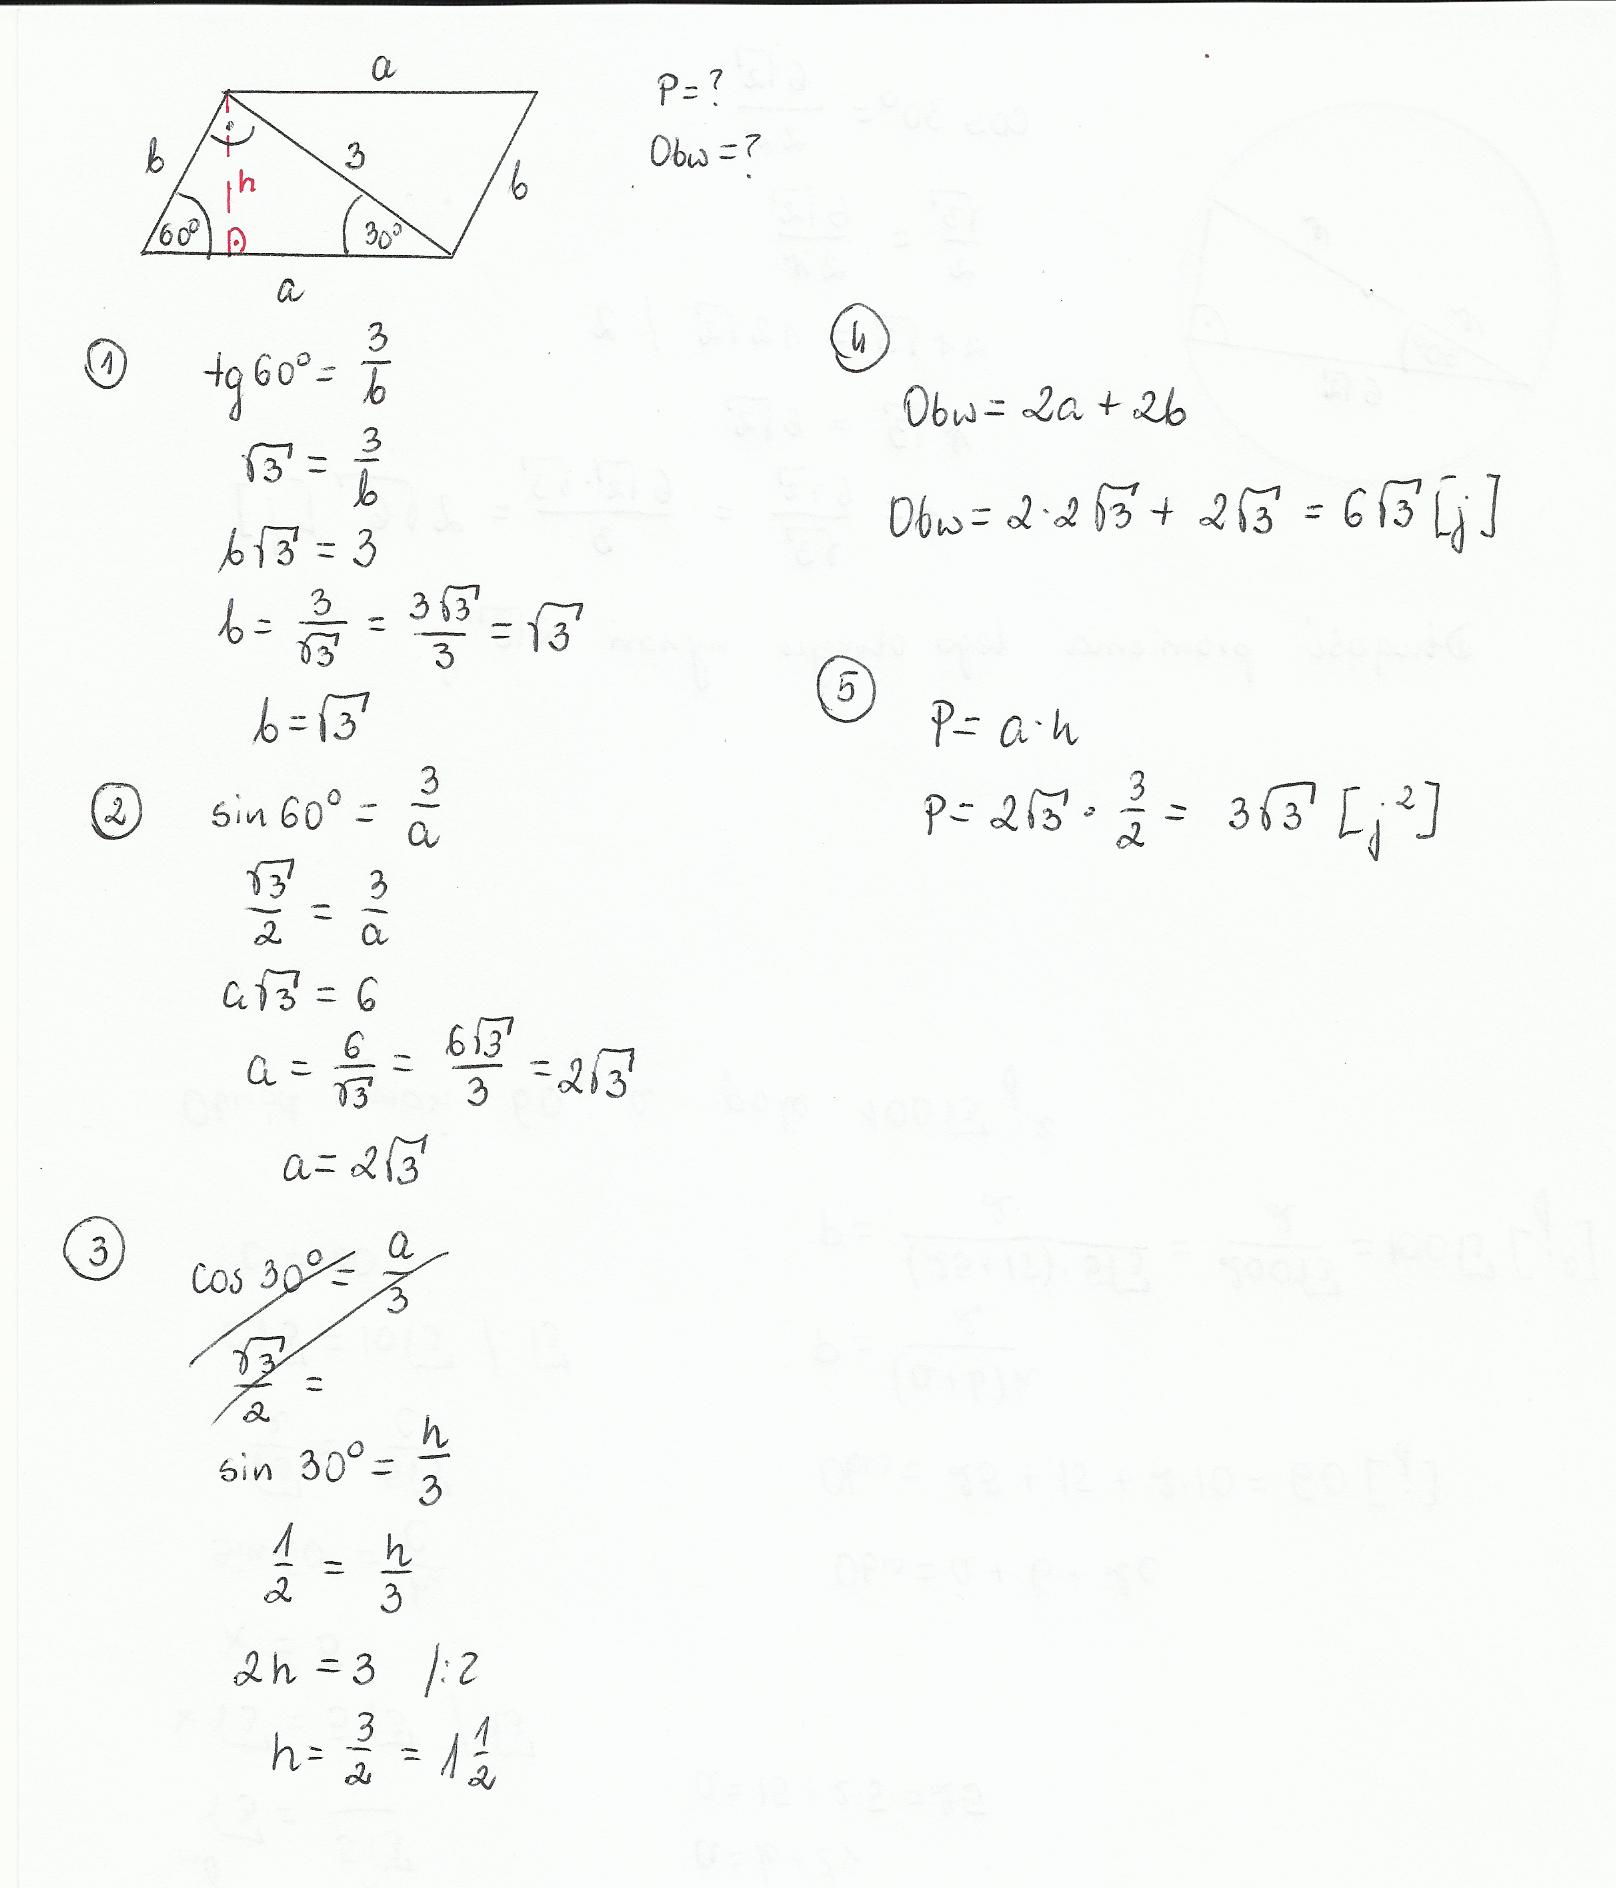 a
P=?
b
3
b
Obw=?
h
60°
30°
a
①
tg60° = 3/b
√3 = 3/b
b√3 = 3
b = 3/√3 = 3√3/3 = √3
b = √3
②
sin 60° = 3/a
√3/2 = 3/a
a√3 = 6
a = 6/√3 = 6√3/3 = 2√3
a = 2√3
③
cos 30° = a/3
√3/2 =
sin 30° = h/3
1/2 = h/3
2h = 3 /:2
h = 3/2 = 1 1/2
④
Obw = 2a + 2b
Obw = 2·2√3 + 2√3 = 6√3 [j]
⑤
P = a·h
P = 2√3 · 3/2 = 3√3 [j²]